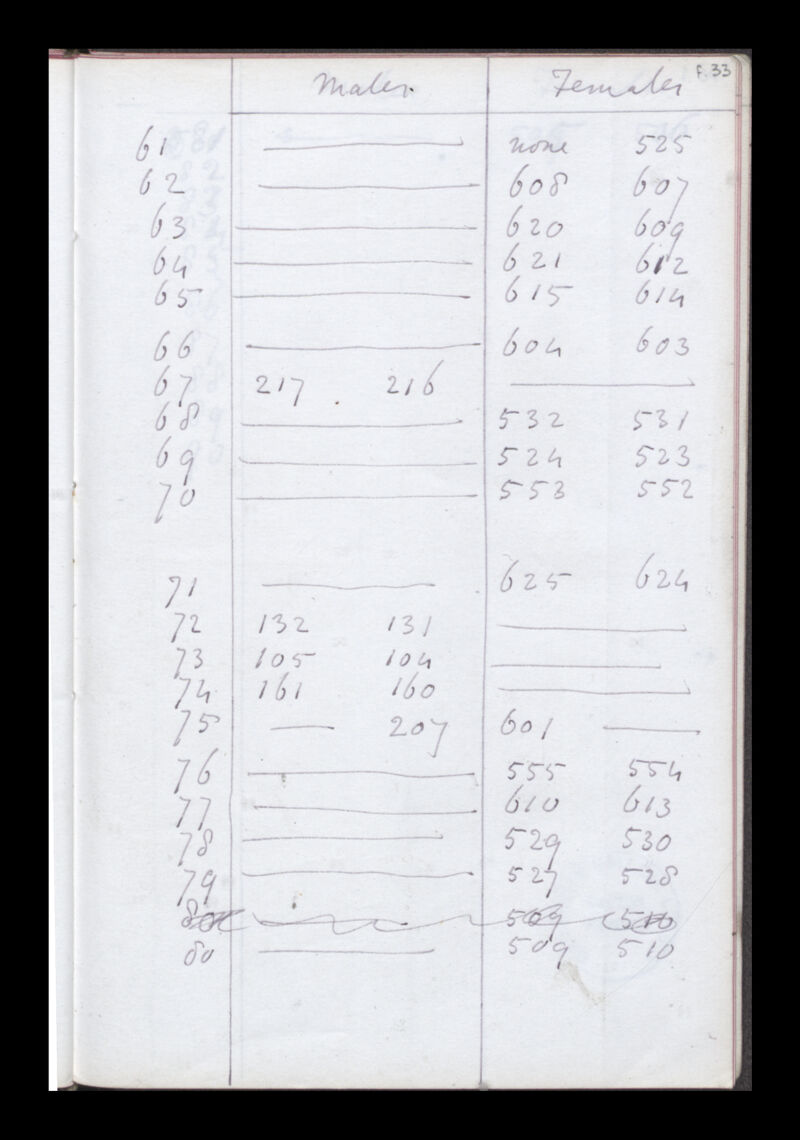 f. 33
Males. Females
61 none 525
62 608 607
63 620 609
64 621 612
65 615 614
66 604 603
67 217 . 216
68 532 531
69 524 523
70 553 552
71 625 624
72 132 131
73 105 104
74 161 160
75 — 207 601 —
76 555 554
77 610 613
78 529 530
79 527 528
80 509 510
80 509 510